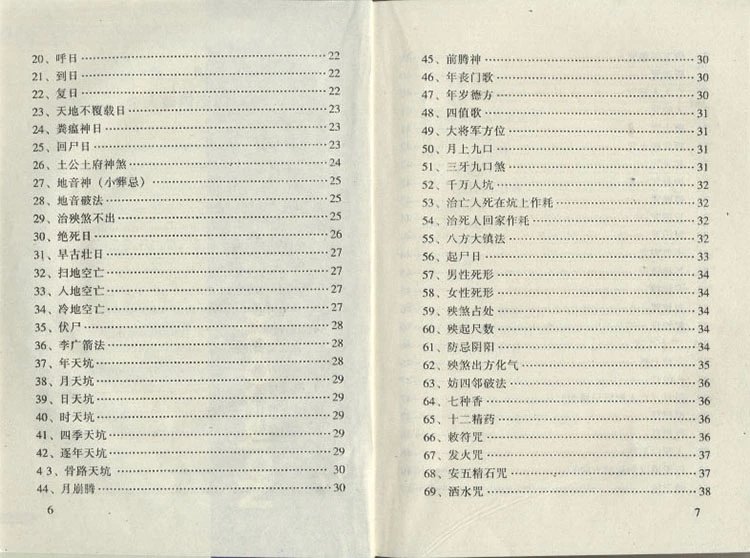 20、呼日………22
21、到日………22
22、复日………22
23、天地不覆载日………23
24、粪瘟神日………23
25、回尸日………23
26、土公土府神煞………24
27、地音神（小葬忌）………25
28、地音破法………25
29、治殃煞不出………25
30、绝死日………26
31、早古壮日………27
32、扫地空亡………27
33、人地空亡………27
34、冷地空亡………27
35、伏尸………28
36、李广箭法………28
37、年天坑………28
38、月天坑………29
39、日天坑………29
40、时天坑………29
41、四季天坑………29
42、逐年天坑………29
43、骨路天坑………30
44、月崩腾………30
6
45、前腾神………30
46、年丧门歌………30
47、年岁德方………30
48、四值歌………31
49、大将军方位………31
50、月上九口………31
51、三牙九口煞………31
52、千万人坑………32
53、治亡人死在炕上作耗………32
54、治死人回家作耗………32
55、八方大镇法………32
56、起尸日………33
57、男性死形………34
58、女性死形………34
59、殃煞占处………34
60、殃起尺数………34
61、防忌阴阳………34
62、殃煞出方化气………35
63、妨四邻破法………36
64、七种香………36
65、十二精药………36
66、敕符咒………36
67、发火咒………37
68、安五精石咒………37
69、洒水咒………38
7